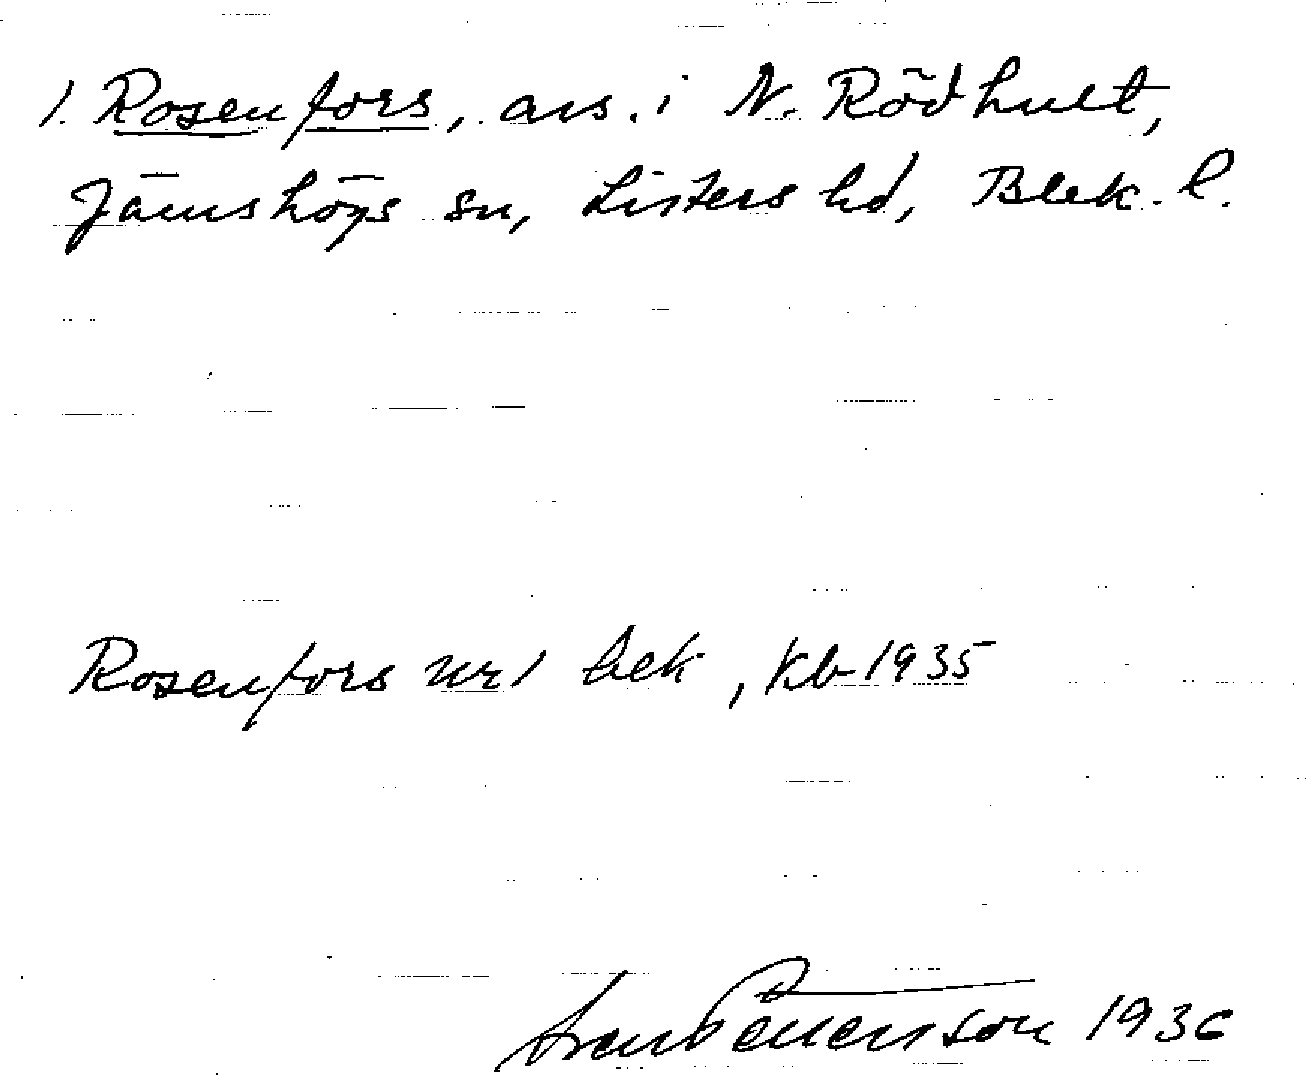 1. Rosenfors, avs. i N. Rödhult,
Jämshögs sn, Listers hd, Blek. l.
Rosenfors nr 1 bek, Kb 1935
Pettersson 1936